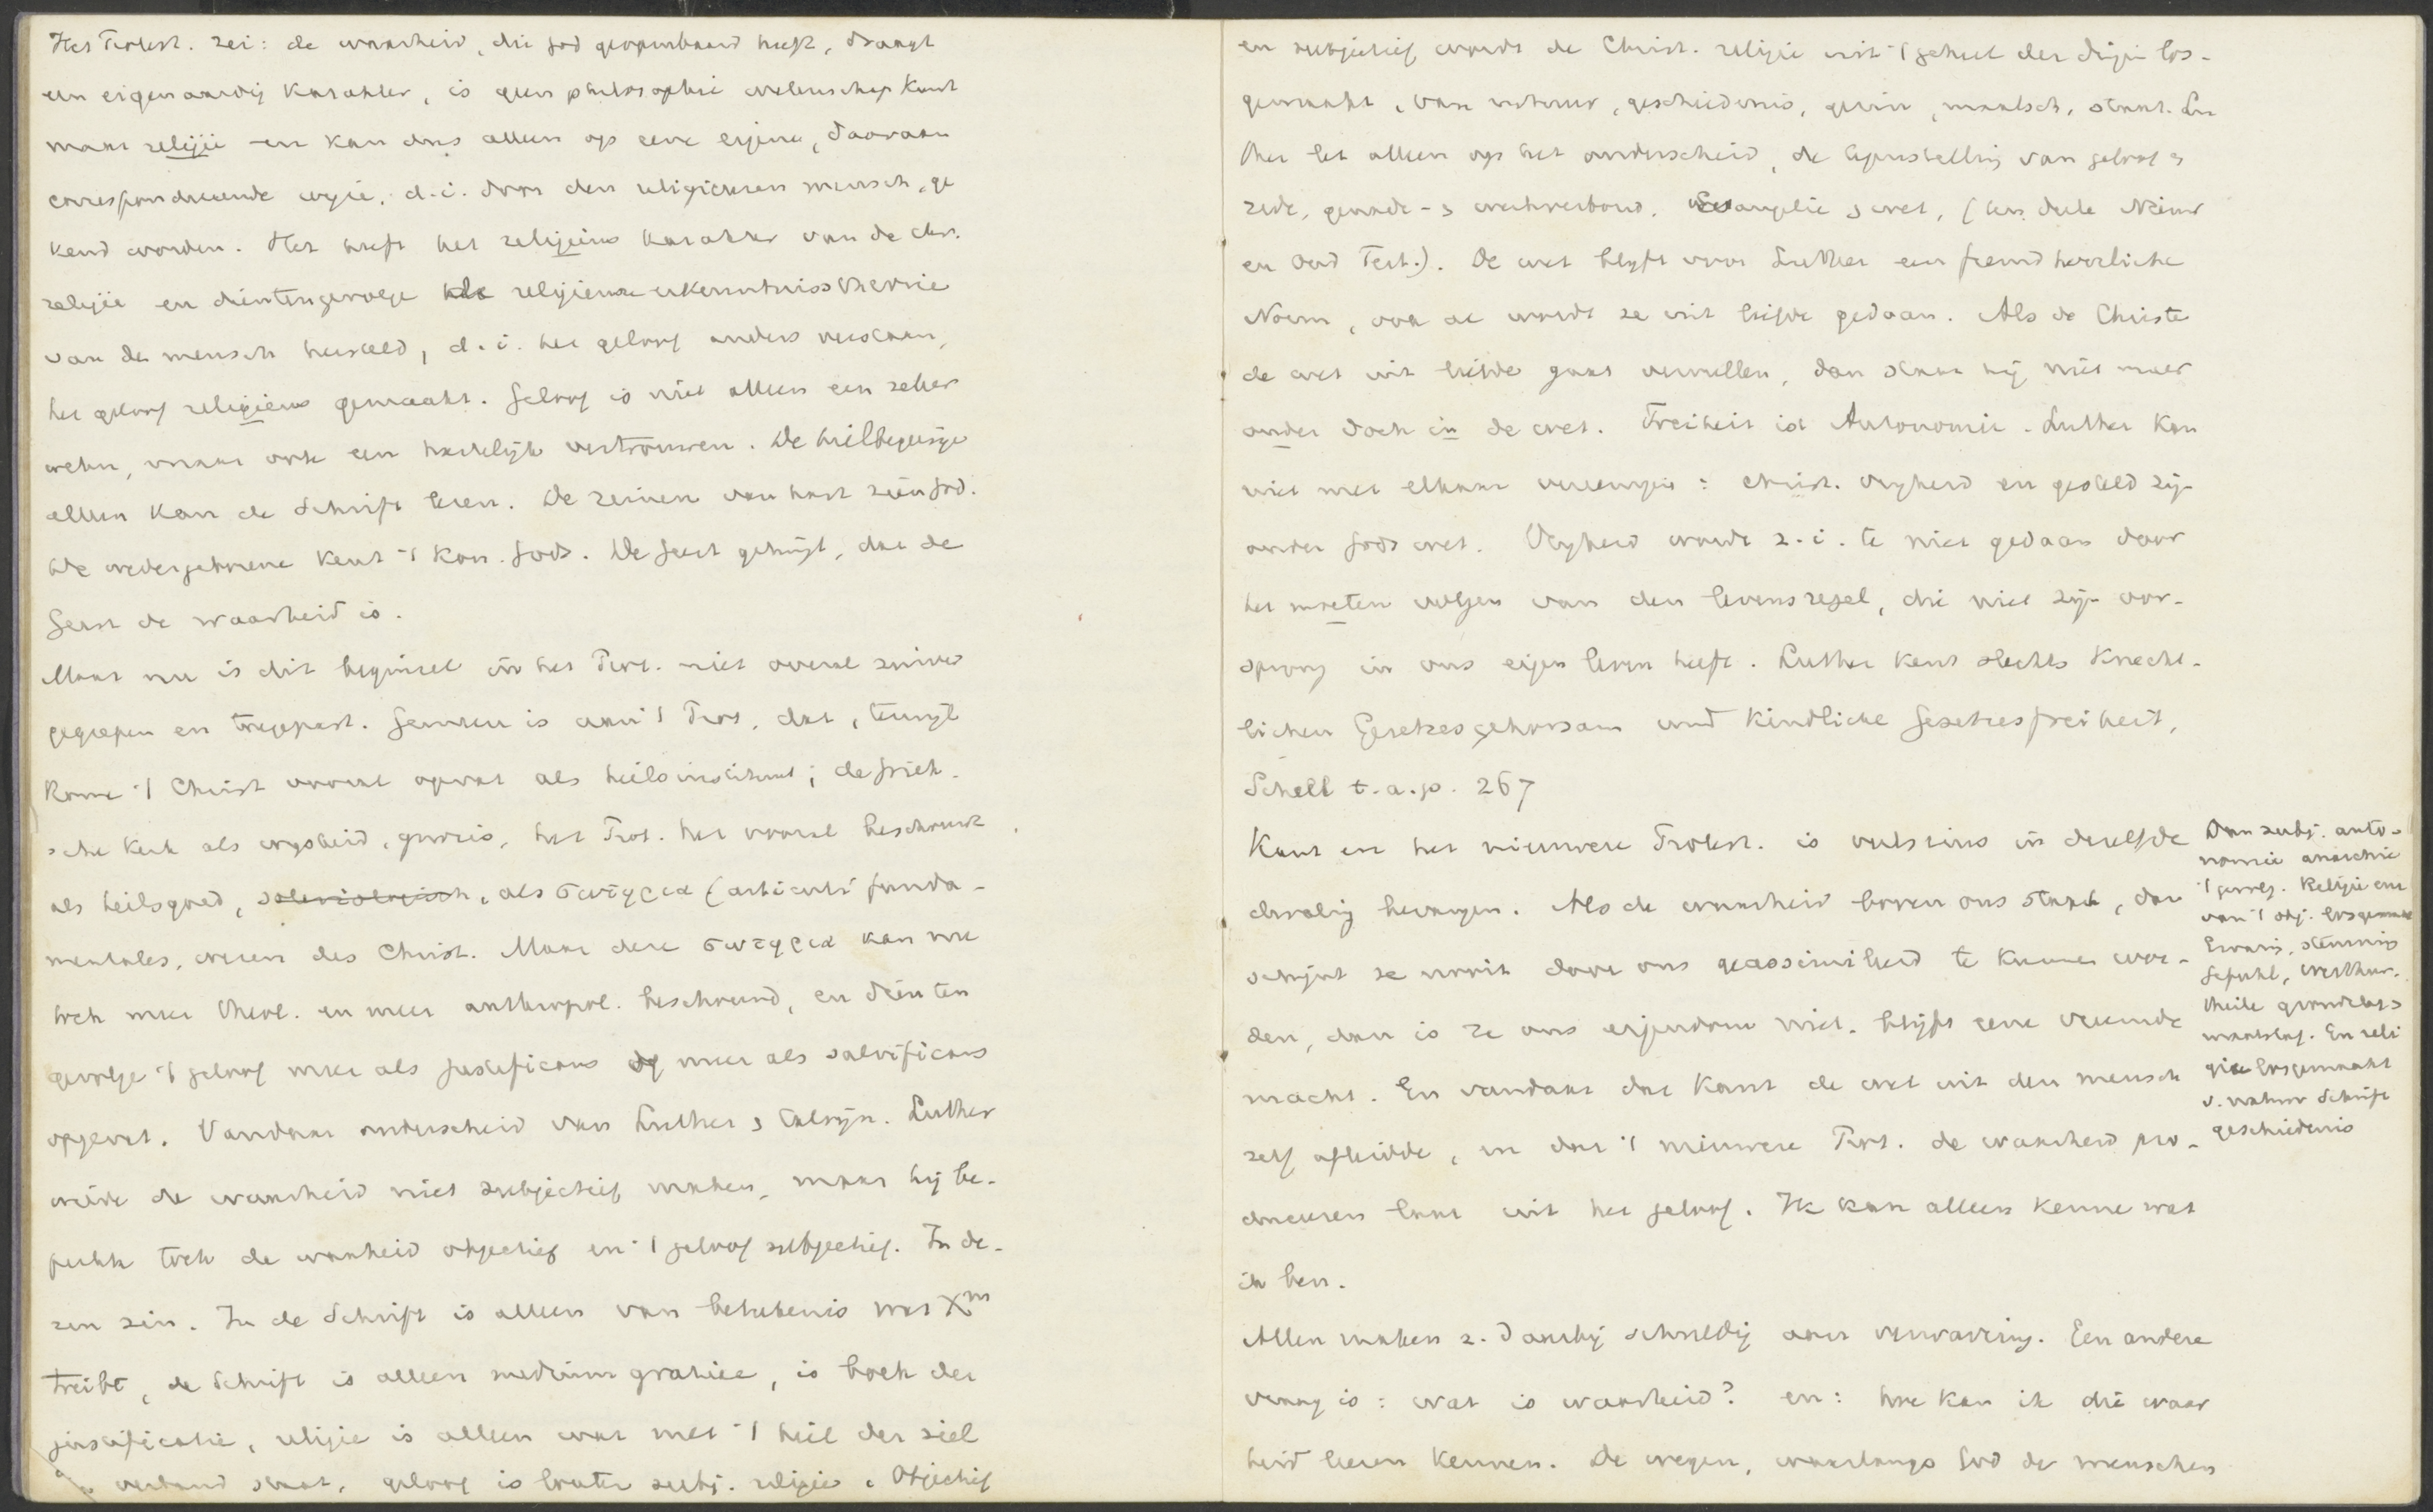 Het Protest. zei: de waarheid, die God geopenbaard heeft, draagt
een eigenaardig karakter, is geen philosophie wetenschap kunst
maar religie en kan dus alleen op eene eigene, daaraan
correspondeerende wijze, d.i. door den religieusen mensch, ge
kend worden. Het heeft het religieus karakter van de chr.
religie en dientengevolge de religieuse erkenntnisstheorie
van de mensch hersteld, d.i. het geloof anders verstaan,
het geloof religieus gemaakt. Geloof is niet alleen een zeker
weten, maar ook een hartelijk vertrouwen. De heilbegeerige
alleen kan de Schrift lezen. De reinen van hart zien God.
De wedergeborene kent 't kon. Gods. De Geest getuigt, dat de
Geest de waarheid is.
Maar nu is dit beginsel in het Prot. niet overal zuiver
gegrepen en toegepast. Gemeen is aan 't Prot. dat, terwijl
Rome 't Christ vooral opvat als heilsinstituut; de Griek-
sche Kerk als wijsheid, gnosis, het Prot. het vooral beschouwt
als heilsgoed, soteriologisch, als σωτηρια (articuli funda-
mentales, wezen des Christ. Maar deze σωτηρια kan nu
toch meer theol. en meer anthropol. beschouwd, en dien ten
gevolge 't geloof meer als justificans of meer als salvificans
opgevat. Vandaar onderscheid van Luther & Calvijn. Luther
wilde de waarheid niet subjectief maken, maar hij be-
perkte toch de waarheid objectief en 't geloof subjectief. In de-
zen zin. In de Schrift is alleen van beteekenis was Xm
treibt, de Schrift is alleen medium gratiae, is boek der
justificatie, religie is alleen wat met 't heil der ziel
in verband staat, geloof is louter subj. religie. Objectief
en subjectief wordt de Christ. religie uit 't geheel der dingen los-
gemaakt, van natuur, geschiedenis, gezin, maatsch, staat. Lu
ther let alleen op het onderscheid, de tegenstelling van geloof &
rede, genade- & werkverbond, Evangelie & wet, (ten deele Nieuw
en Oud Test.). De wet blijft voor Luther een fremd herrliche
Norm, ook al wordt ze uit liefde gedaan. Als de Christe
de wet uit liefde gaat vervullen, dan staat hij niet meer
onder doch in de wet. Freiheit ist Autonomie. Luther kon
niet met elkaar vereenigen: christ. vrijheid en gesteld zijn
onder Gods wet. Vrijheid wordt z.i. te niet gedaan door
het moeten volgen van den levensregel, die niet zijn oor-
sprong in ons eigen leven heeft. Luther kent slechts Knecht-
lichen Gesetzesgehorsam und Kindliche Gesetzesfreiheit,
Schell t.a.p. 267
Kant en het nieuwere Protest. is veelszins in dezelfde
dwaling bevangen. Als de waarheid boven ons staat, dan
schijnt ze nooit door ons geassimileerd te kunnen wor-
den, dan is ze ons eigendom niet, blijft eene vreemde
macht. En vandaar dat Kant de wet uit den mensch
zelf afleidde, en dat 't nieuwere Prot. de waarheid pro-
duceeren laat uit het geloof. Ik kan alleen kenne wat
ik ben.
Allen maken z. daarbij schuldig aan verwarring. Een andere
vraag is: wat is waarheid? en: hoe kan ik die waar
heid leeren kennen. De wegen, waarlangs God de menschen
Van subj. auto-
nomie anarchie
't gevolg. Religie enz
van 't obj. losgemaakt
Ervaring, stemming
Gefühl, Werthur.
theile grondslag &
maatstaf. En reli
gie losgemaakt
v. natuur Schrift
geschiedenis